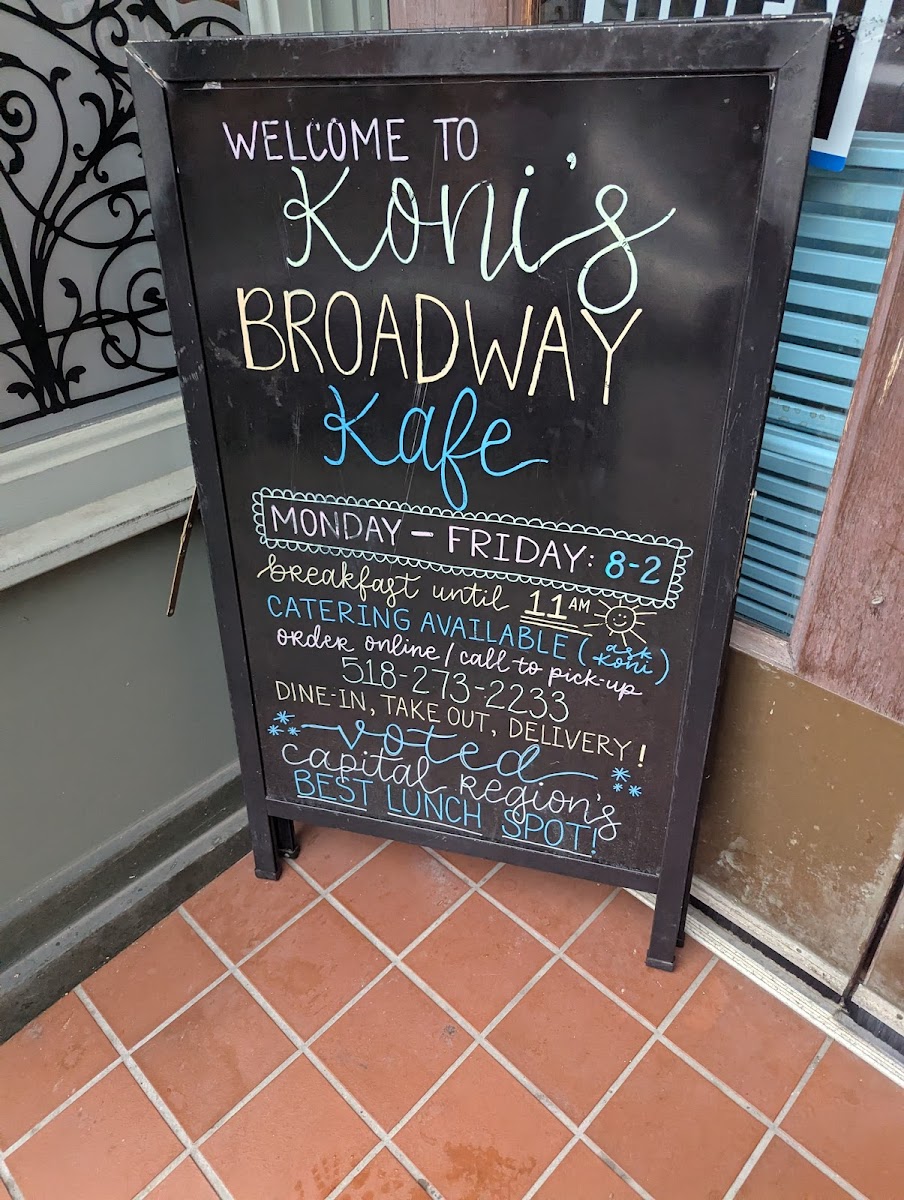 WELCOME TO
Koni's
BROADWAY
Kafe
MONDAY - FRIDAY: 8-2
breakfast until 11AM
CATERING AVAILABLE (ask Koni)
order online / call to pick-up
518-273-2233
DINE-IN, TAKE OUT, DELIVERY!
voted
Capital Region's
BEST LUNCH SPOT!